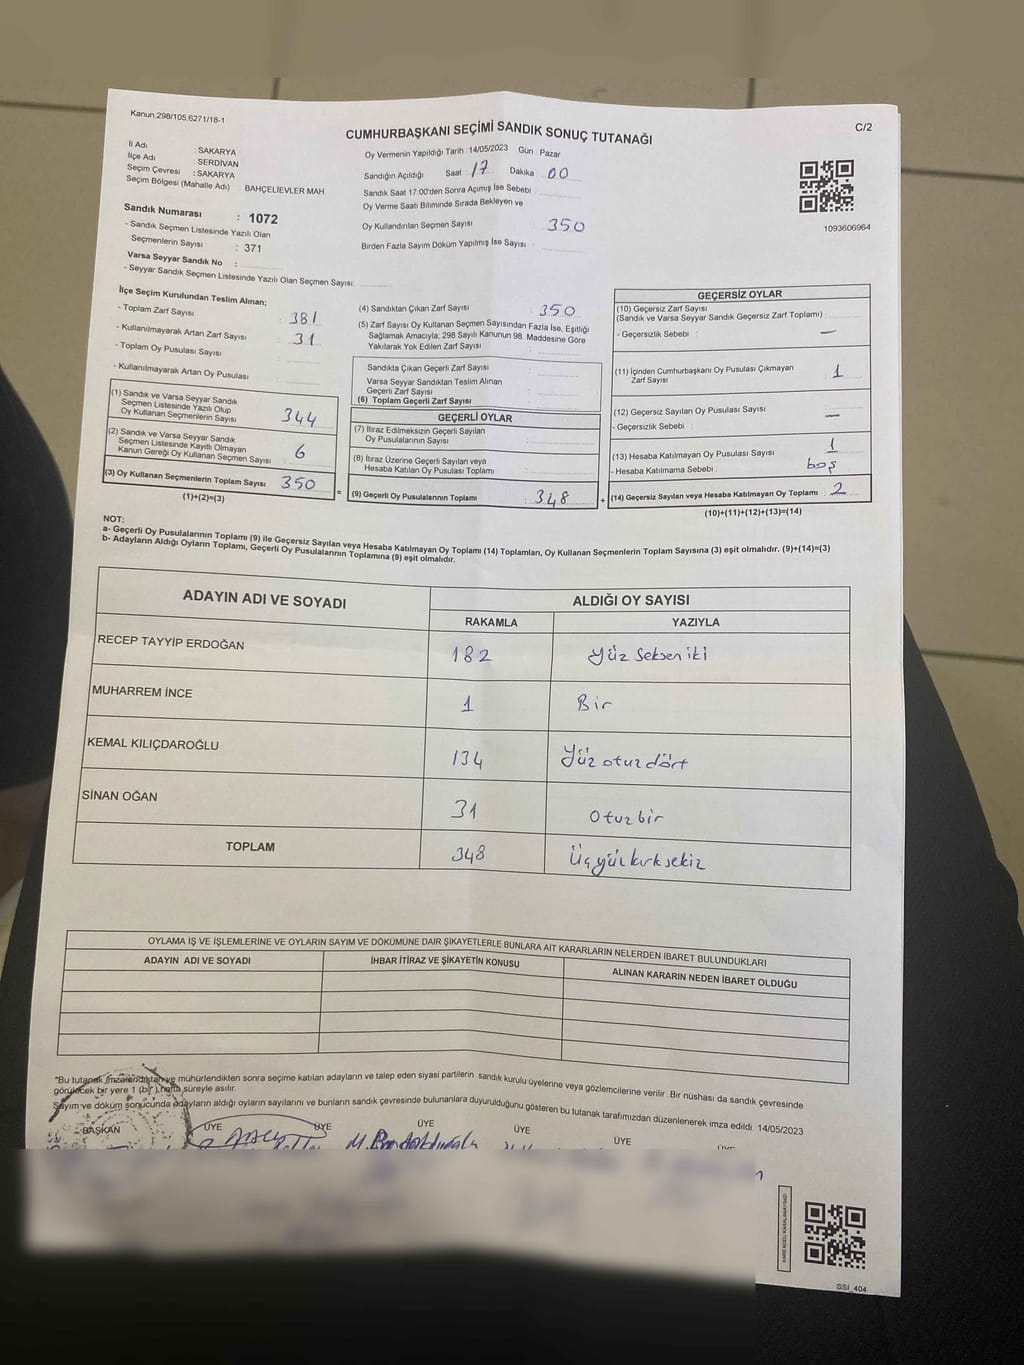 Kanun;298/105,6271/18-1
C/2
CUMHURBAŞKANI SEÇİMİ SANDIK SONUÇ TUTANAĞI
İl Adı : SAKARYA
İlçe Adı : SERDİVAN
Seçim Çevresi : SAKARYA
Seçim Bölgesi (Mahalle Adı) : BAHÇELİEVLER MAH
Sandık Numarası : 1072
- Sandık Seçmen Listesinde Yazılı Olan
Seçmenlerin Sayısı : 371
Varsa Seyyar Sandık No :
- Seyyar Sandık Seçmen Listesinde Yazılı Olan Seçmen Sayısı:
Oy Vermenin Yapıldığı Tarih :14/05/2023 Gün : Pazar
Sandığın Açıldığı Saat : 17 Dakika : 00
Sandık Saat 17:00'den Sonra Açımış İse Sebebi :
Oy Verme Saati Bitiminde Sırada Bekleyen ve
Oy Kullandırılan Seçmen Sayısı : 350
Birden Fazla Sayım Döküm Yapılmış İse Sayısı :
1093606964
İlçe Seçim Kurulundan Teslim Alınan;
- Toplam Zarf Sayısı : 381
- Kullanılmayarak Artan Zarf Sayısı : 31
- Toplam Oy Pusulası Sayısı :
- Kullanılmayarak Artan Oy Pusulası :
(1) Sandık ve Varsa Seyyar Sandık
Seçmen Listesinde Yazılı Olup
Oy Kullanan Seçmenlerin Sayısı : 344
(2) Sandık ve Varsa Seyyar Sandık
Seçmen Listesinde Kayıtlı Olmayan
Kanun Gereği Oy Kullanan Seçmen Sayısı : 6
(3) Oy Kullanan Seçmenlerin Toplam Sayısı : 350
(1)+(2)=(3)
(4) Sandıktan Çıkan Zarf Sayısı : 350
(5) Zarf Sayısı Oy Kullanan Seçmen Sayısından Fazla İse, Eşitliği
Sağlamak Amacıyla, 298 Sayılı Kanunun 98. Maddesine Göre
Yakılarak Yok Edilen Zarf Sayısı :
Sandıkta Çıkan Geçerli Zarf Sayısı :
Varsa Seyyar Sandıktan Teslim Alınan
Geçerli Zarf Sayısı :
(6) Toplam Geçerli Zarf Sayısı :
GEÇERLİ OYLAR
(7) İtiraz Edilmeksizin Geçerli Sayılan
Oy Pusulalarının Sayısı :
(8) İtiraz Üzerine Geçerli Sayılan veya
Hesaba Katılan Oy Pusulası Toplamı :
= (9) Geçerli Oy Pusulalarının Toplamı : 348 +
GEÇERSİZ OYLAR
(10) Geçersiz Zarf Sayısı
(Sandık ve Varsa Seyyar Sandık Geçersiz Zarf Toplamı) :
- Geçersizlik Sebebi : —
(11) İçinden Cumhurbaşkanı Oy Pusulası Çıkmayan
Zarf Sayısı : 1
(12) Geçersiz Sayılan Oy Pusulası Sayısı : —
- Geçersizlik Sebebi :
(13) Hesaba Katılmayan Oy Pusulası Sayısı : 1
- Hesaba Katılmama Sebebi : boş
(14) Geçersiz Sayılan veya Hesaba Katılmayan Oy Toplamı : 2
(10)+(11)+(12)+(13)=(14)
NOT:
a- Geçerli Oy Pusulalarının Toplamı (9) ile Geçersiz Sayılan veya Hesaba Katılmayan Oy Toplamı (14) Toplamları, Oy Kullanan Seçmenlerin Toplam Sayısına (3) eşit olmalıdır. (9)+(14)=(3)
b- Adayların Aldığı Oyların Toplamı, Geçerli Oy Pusulalarının Toplamına (9) eşit olmalıdır.
ADAYIN ADI VE SOYADI ALDIĞI OY SAYISI
RAKAMLA YAZIYLA
RECEP TAYYİP ERDOĞAN 182 Yüz Seksen iki
MUHARREM İNCE 1 Bir
KEMAL KILIÇDAROĞLU 134 Yüz otuz dört
SİNAN OĞAN 31 Otuz bir
TOPLAM 348 Üç yüz kırk sekiz
OYLAMA İŞ VE İŞLEMLERİNE VE OYLARIN SAYIM VE DÖKÜMÜNE DAİR ŞİKAYETLERLE BUNLARA AİT KARARLARIN NELERDEN İBARET BULUNDUKLARI
ADAYIN ADI VE SOYADI İHBAR İTİRAZ VE ŞİKAYETİN KONUSU ALINAN KARARIN NEDEN İBARET OLDUĞU
*Bu tutanak imzalandıktan ve mühürlendikten sonra seçime katılan adayların ve talep eden siyasi partilerin sandık kurulu üyelerine veya gözlemcilerine verilir. Bir nüshası da sandık çevresinde
görülecek bir yere 1 (bir ) hafta süreyle asılır.
Sayım ve döküm sonucunda adayların aldığı oyların sayılarını ve bunların sandık çevresinde bulunanlara duyurulduğunu gösteren bu tutanak tarafımızdan düzenlenerek imza edildi. 14/05/2023
BAŞKAN ÜYE ÜYE ÜYE ÜYE ÜYE
SSI_404